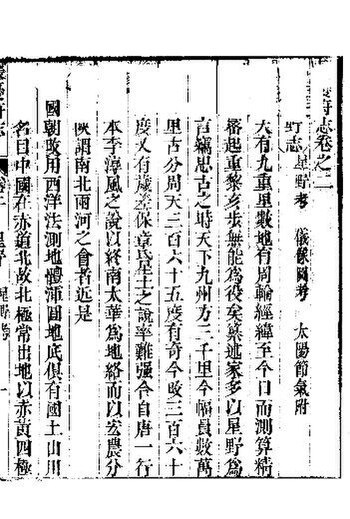 府志卷之二
野志 星野考 儀象圖考 太陽節氣附
天有九重里數地有周輪經緯至今日而測算精
審起重黎亥步無能為役矣纂述家多以星野為
言竊思古之時天下九州方三千里今幅員數萬
里古分周天三百六十五度有奇今改三百六十
度又有歲差保章氏星土之說率難强合自唐一行
本李淳風之說以終南太華為地絡而以宏農分
陝謂南北兩河之會者近是
國朝改用西洋法測地體渾圓地底俱有國土山川
名曰中國在赤道北故北極常出地以赤黃四極
府志 卷二 星野 星野考 一